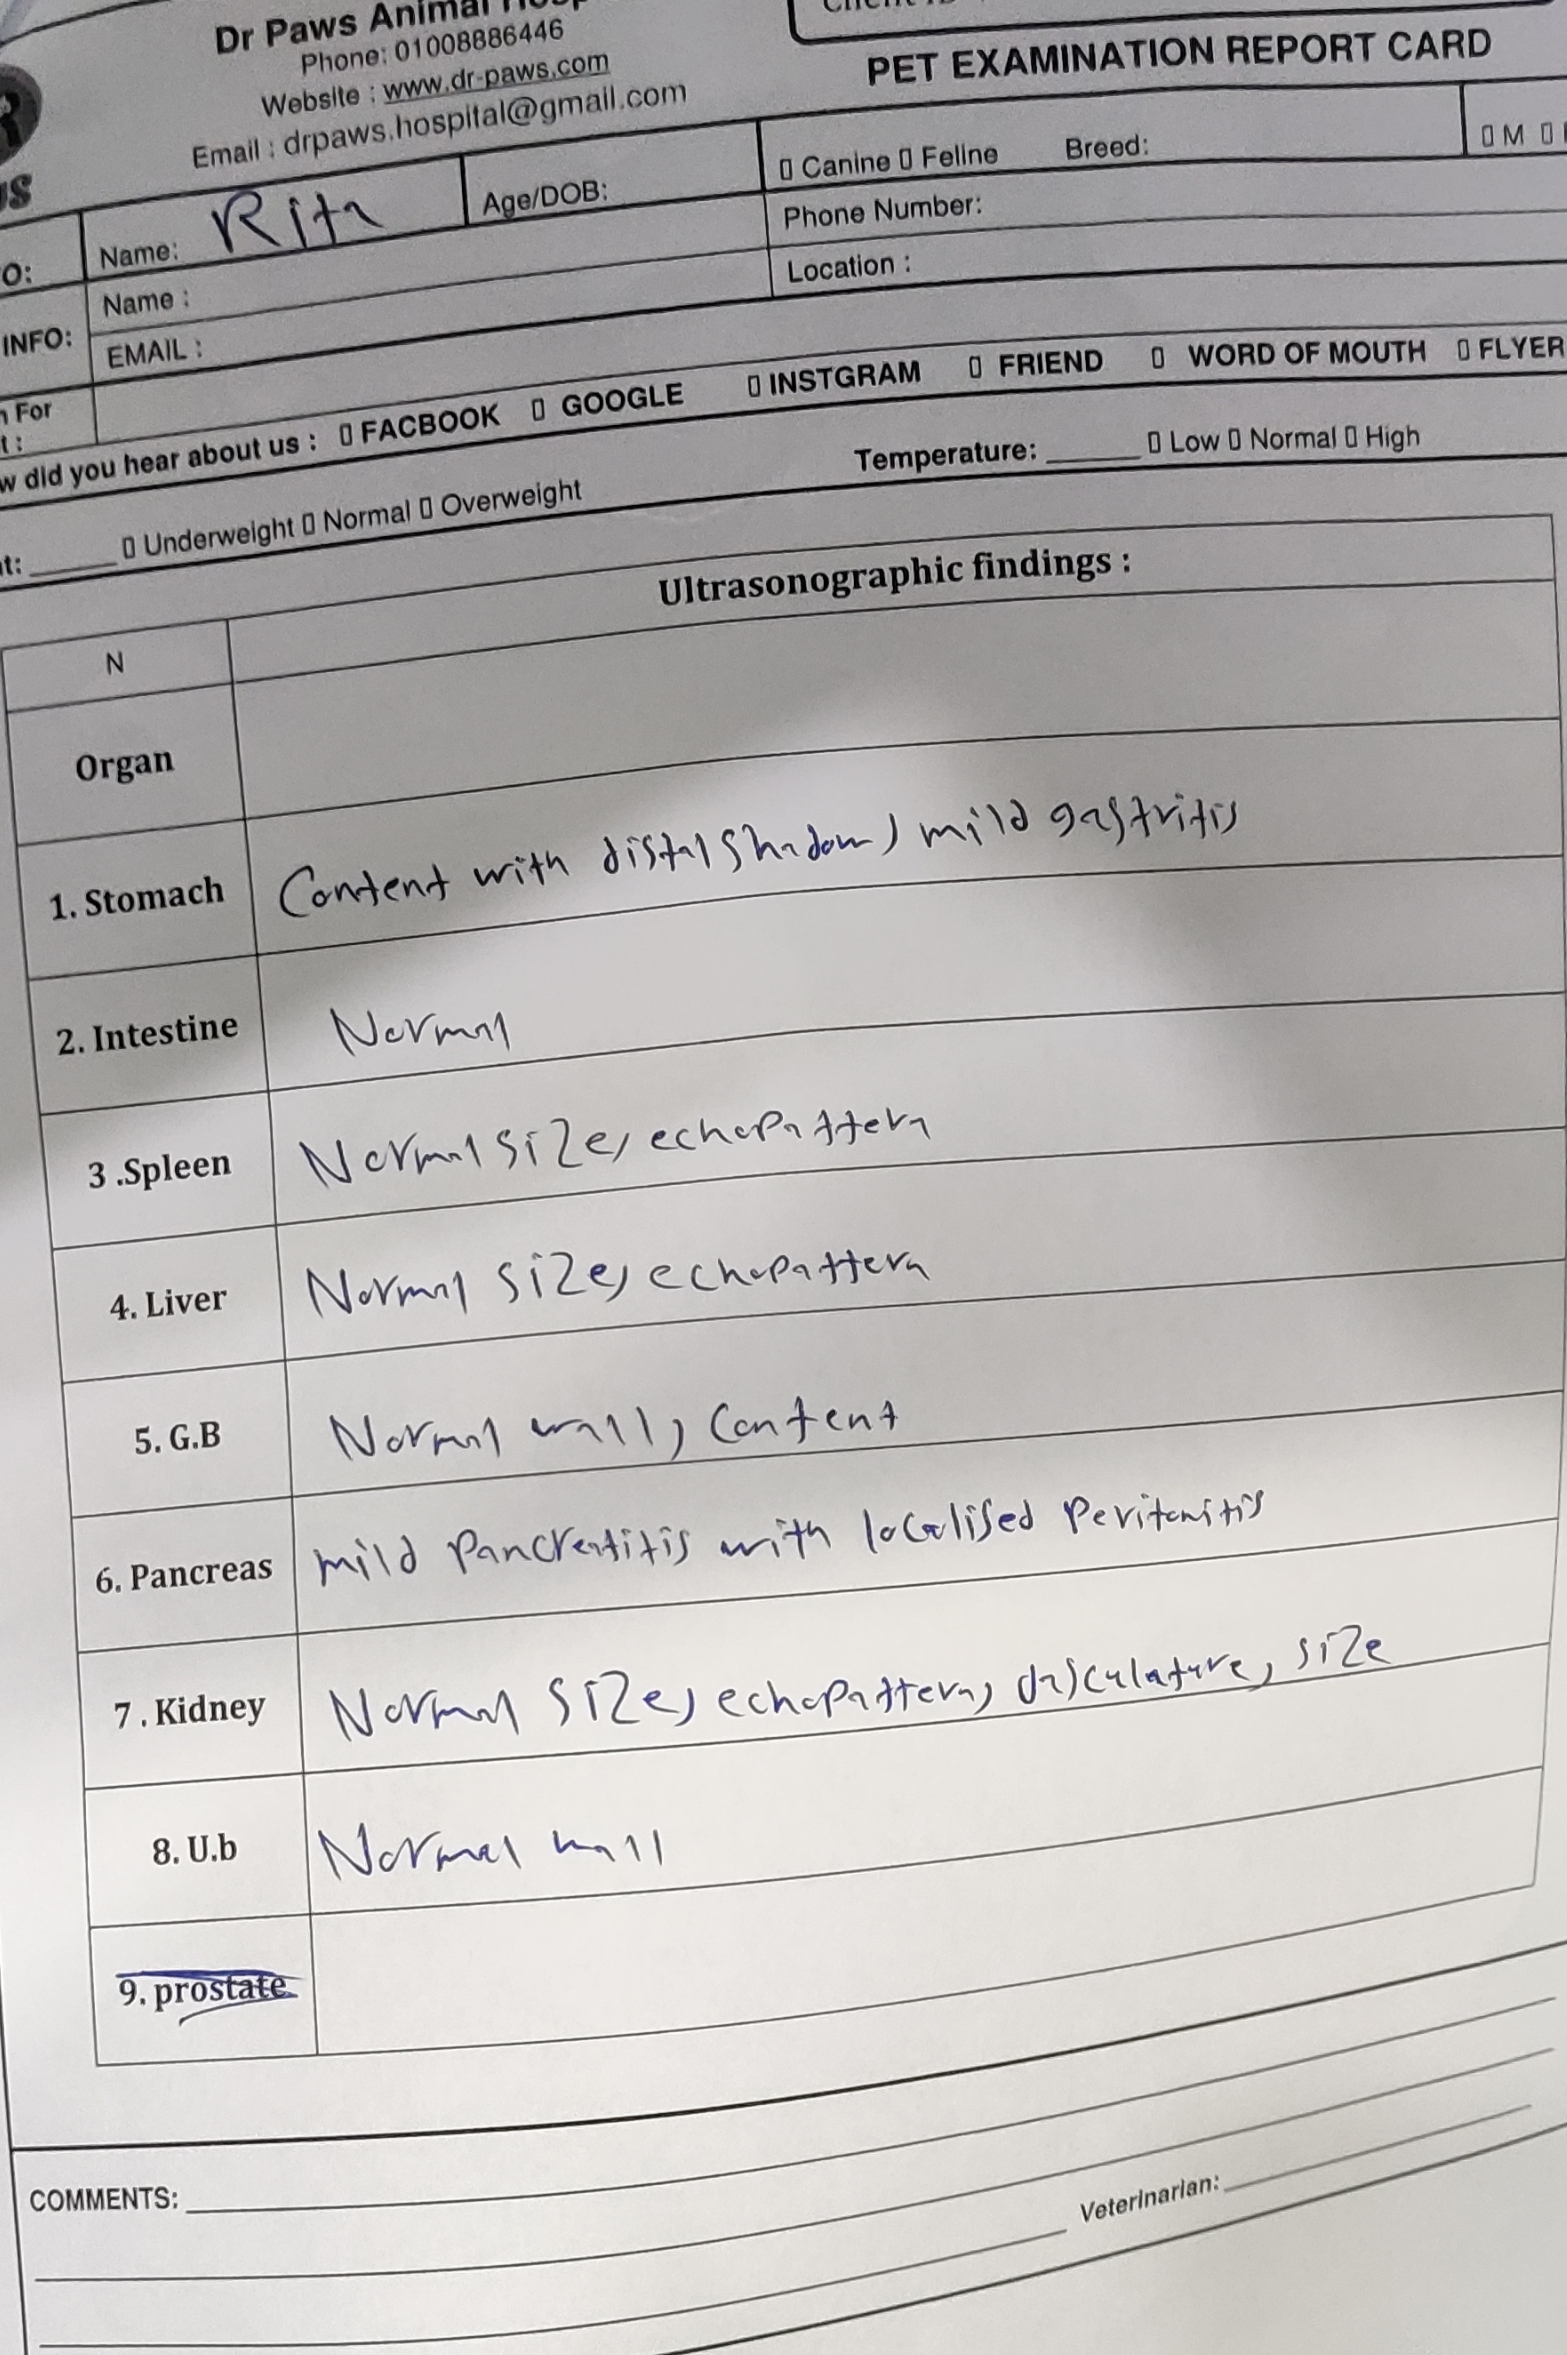 Dr Paws Animal
Phone: 01008886446
Website : www.dr-paws.com
Email : drpaws.hospital@gmail.com
PET EXAMINATION REPORT CARD
O:
Name: Rita
Age/DOB:
▯ Canine ▯ Feline Breed:
▯ M ▯
INFO:
Name :
Phone Number:
EMAIL :
Location :
For
t :
w did you hear about us : ▯ FACBOOK ▯ GOOGLE ▯ INSTGRAM ▯ FRIEND ▯ WORD OF MOUTH ▯ FLYER
t: ______ ▯ Underweight ▯ Normal ▯ Overweight
Temperature: ______ ▯ Low ▯ Normal ▯ High
N
Ultrasonographic findings :
Organ
1. Stomach
Content with distal shadow, mild gastritis
2. Intestine
Normal
3 .Spleen
Normal size, echopattern
4. Liver
Normal size, echopattern
5. G.B
Normal wall, content
6. Pancreas
mild pancreatitis with localised peritonitis
7 . Kidney
Normal size, echopattern, vasculature, size
8. U.b
Normal wall
9. prostate
COMMENTS:
Veterinarian: